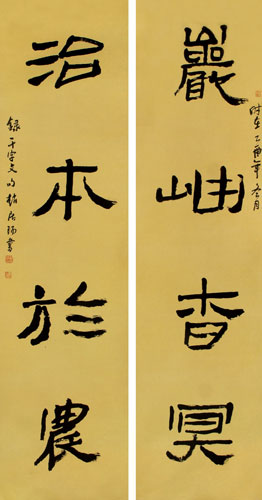 巖岫杳冥
時在乙酉年冬月
治本於農
錄千字文句
書